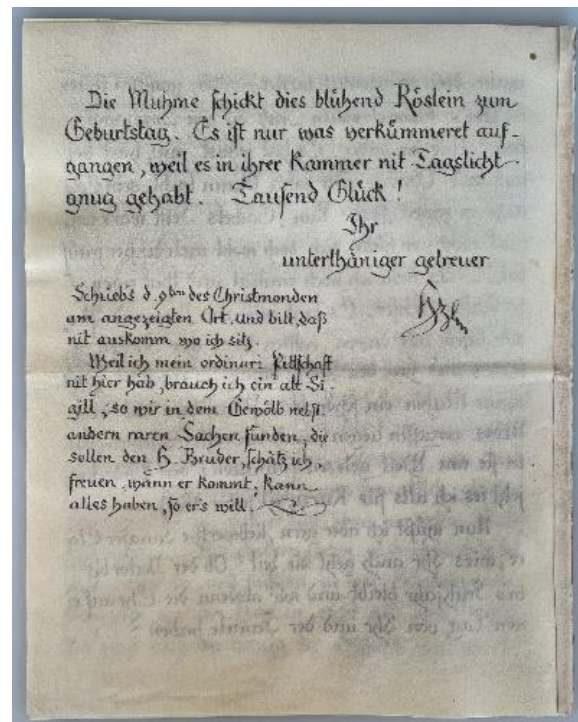 Die Muhme schickt dies blühend Röslein zum
Geburtstag. Es ist nur was verkümmeret auf-
gangen, weil es in ihrer Kammer nit Tagslicht
gnug gehabt. Tausend Glück!
Ihr
unterthäniger getreuer
Schrieb's d. 9ten des Christmonden
am angezeigten Ort, und bitt, daß
nit auskomm wo ich sitz.
Weil ich mein ordinari Pittschaft
nit hier hab, brauch ich ein alt Si-
gill, so wir in dem Gewölb nebst
andern raren Sachen funden, die
sollen den H. Bruder, schätz ich,
freuen, wann er kommt. Kann
alles haben, so er's will.